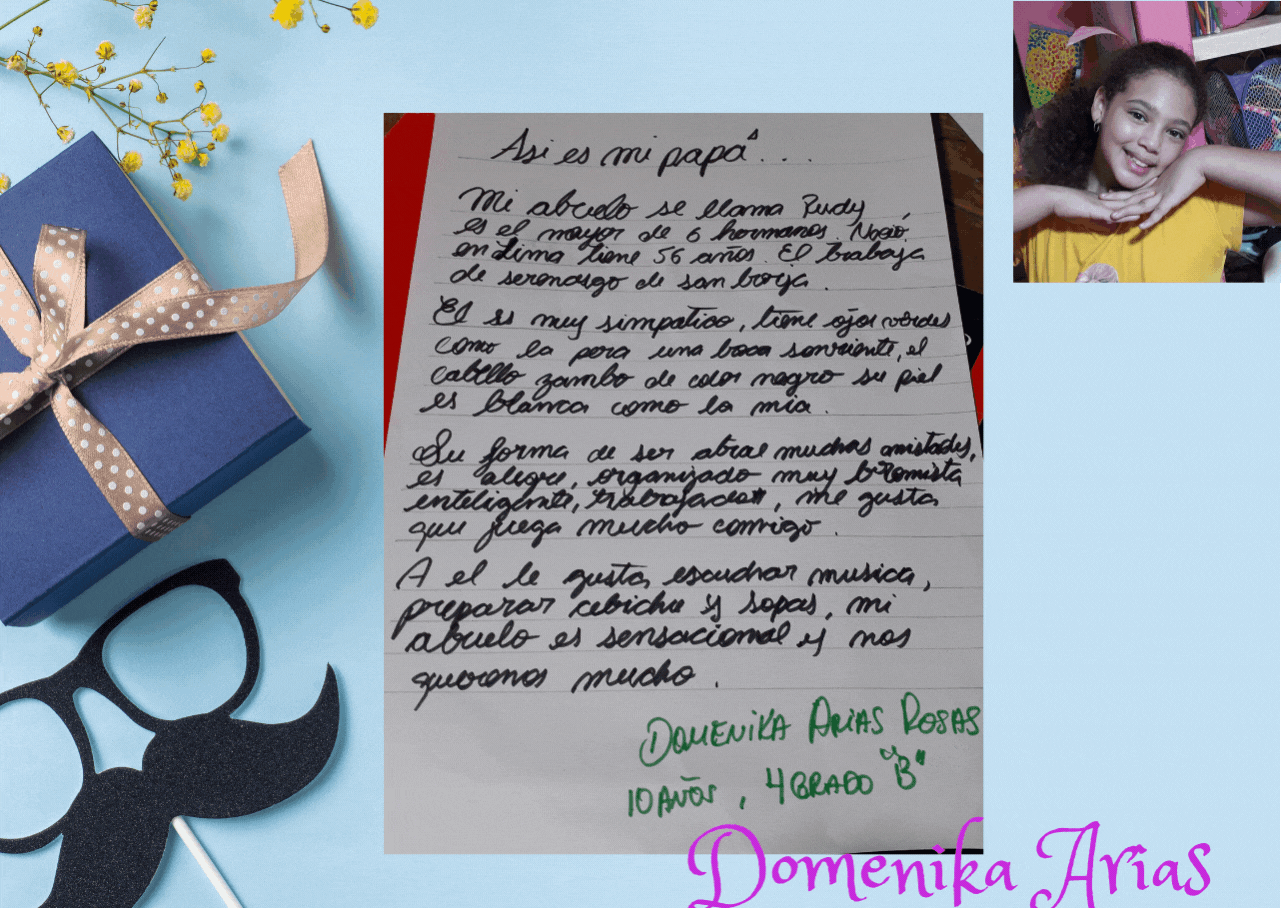 Asi es mi papá...
Mi abuelo se llama Rudy,
es el mayor de 6 hermanos. Nació
en Lima tiene 56 años. El trabaja
de serenasgo de san borja.
El es muy simpatico, tiene ojos verdes
como la pera una boca sonriente, el
cabello zambo de color negro su piel
es blanca como la mia.
Su forma de ser atrae muchas amistades,
es alegre, organizado muy bromista
enteligente, trabajador, me gusta
que juega mucho conmigo.
A el le gusta escuchar musica,
preparar cebiche y sopas, mi
abuelo es sensacional y nos
queremos mucho.
DOMENIKA ARIAS ROSAS
10 AÑOS, 4 GRADO "B"
Domenika Arias